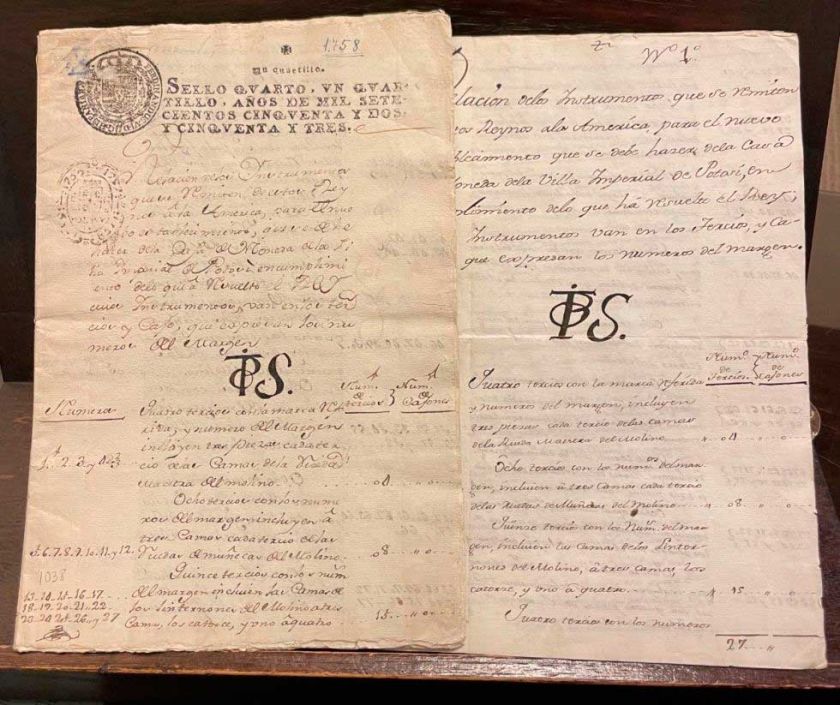 1758
Un quartillo.
SELLO QVARTO, VN QVAR-
TILLO, AÑOS DE MIL SETE-
CIENTOS CINQVENTA Y DOS,
Y CINQVENTA Y TRES.
Relacion de los Instrumentos
que se Remiten de estos Rey
nos a la America, para el nuevo
que se deve
hazer de la Casa de Moneda de la Vi
lla Imperial de Potosi en cumplimi
ento de lo que ha Resuelto el Rey
cuios Instrumentos, van en los ter
cios y Cajo, que expresan los nu
meros del Margen
PTS.
Numeros
Num.^s de tercios
Num.^s de Cajones
Quatro tercios con la marca Refe
rida, y numero del Margen
incluyen tres piezas cada ter
1. 2. 3. y 4
cio de las Camas de la Rueda
Maestra del molino
4
Ocho tercios con los nume
ros del margen incluyen â
tres Camas cada tercio de las
5. 6. 7. 8. 9. 10. 11. y 12.
Ruedas de Muñecas del Molino
08
Quince tercios con los num
1038
13..14..15..16..17
del margen incluien las Camas de
18..19..20..21..22
los Linternones del Molino a tres
23..24..25..26..y 27
Camas, los catorce, y uno â quatro
15
N.º 1.º
Relacion de los Instrumentos, que se remiten
Reynos a la America, para el nuevo
que se debe hazer de la Casa de
Moneda de la Villa Imperial de Potosi, en
cumplimiento de lo que há resuelto el Rey;
Instrumentos van en los Tercios, y Ca
que expresan los numeros del margen.
PTS.
Num.^s de Tercios.
Num.^s de Cajones
Quatro tercios con la marca referida
y numeros del margen, incluyen
tres piezas cada tercio de las camas
de la Rueda Maestra del Molino
4
Ocho tercios con los num.^os del mar
gen, incluien á tres Camas cada tercio
de las Ruedas de Muñecas del Molino
08
Quinze tercios con los Num.^s del mar
gen, incluien las Camas de los Linter-
nones del Molino, á tres camas, los
catorze, y uno â quatro
15
Quatro tercios con los numeros
27